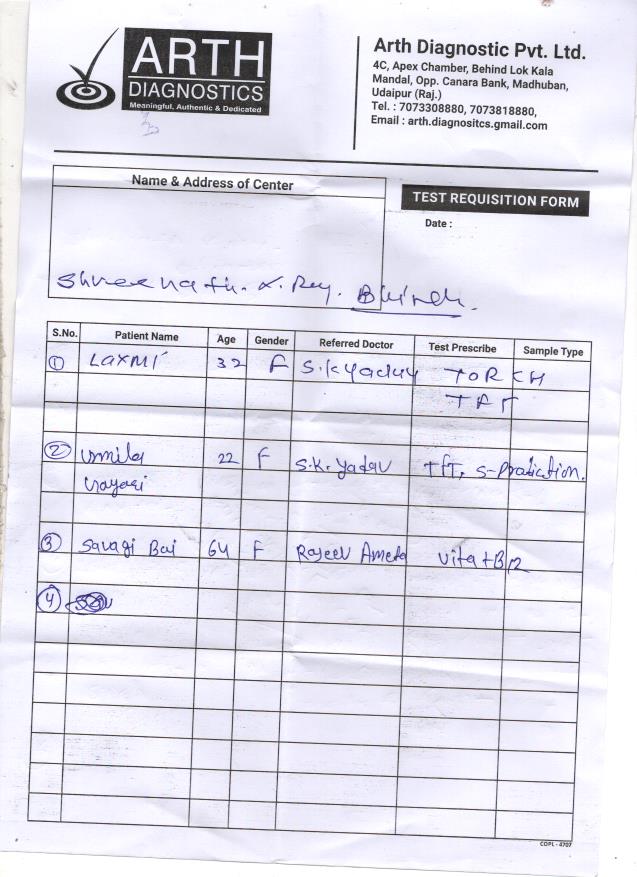 ARTH
DIAGNOSTICS
Meaningful, Authentic & Dedicated
Arth Diagnostic Pvt. Ltd.
4C, Apex Chamber, Behind Lok Kala
Mandal, Opp. Canara Bank, Madhuban,
Udaipur (Raj.)
Tel. : 7073308880, 7073818880,
Email : arth.diagnositcs.gmail.com
Name & Address of Center
TEST REQUISITION FORM
Date :
Shreenath. X. Ray. Bhindr.
S.No. Patient Name Age Gender Referred Doctor Test Prescribe Sample Type
1 LAXMI 32 F S.K Yadav TORCH
TFT
2 Urmila 22 F S.K. Yadav TFT, S-Prolaction.
3 Savagi Bai 64 F Rajeev Ameta Vita + B12
4
COPL - 4707